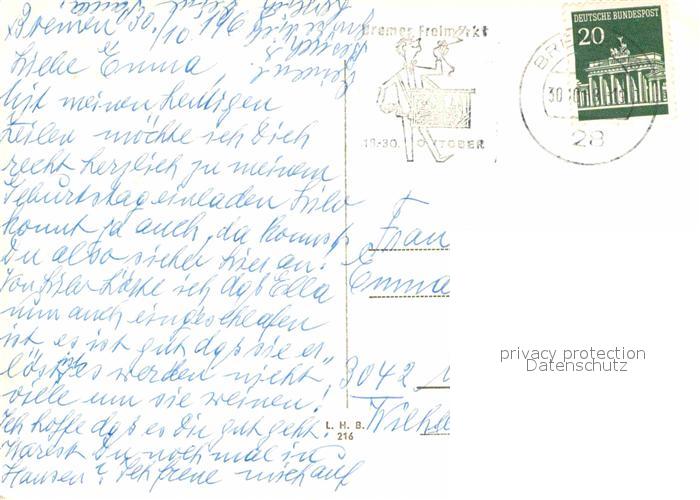 Bremen 30.10.196
Liebe Emma,
Mit meinen heutigen
Zeilen möchte ich Dich
recht herzlich zu meinem
Geburtstag einladen
kommt ja auch, da kommst
Du also sicher hier an!
ich daß Ella
nun auch eingeschlafen
ist, es ist gut daß sie er
löst ist es werden nicht
viele um sie weinen!
Ich hoffe daß es Dir gut geht!
Warest Du noch mal in
Hausen? Ich freue mich auf
Bremer Freimarkt
18.-30. OKTOBER
DEUTSCHE BUNDESPOST
20
28
Frau
Emma
3042
L. H. B.
216
privacy protection
Datenschutz